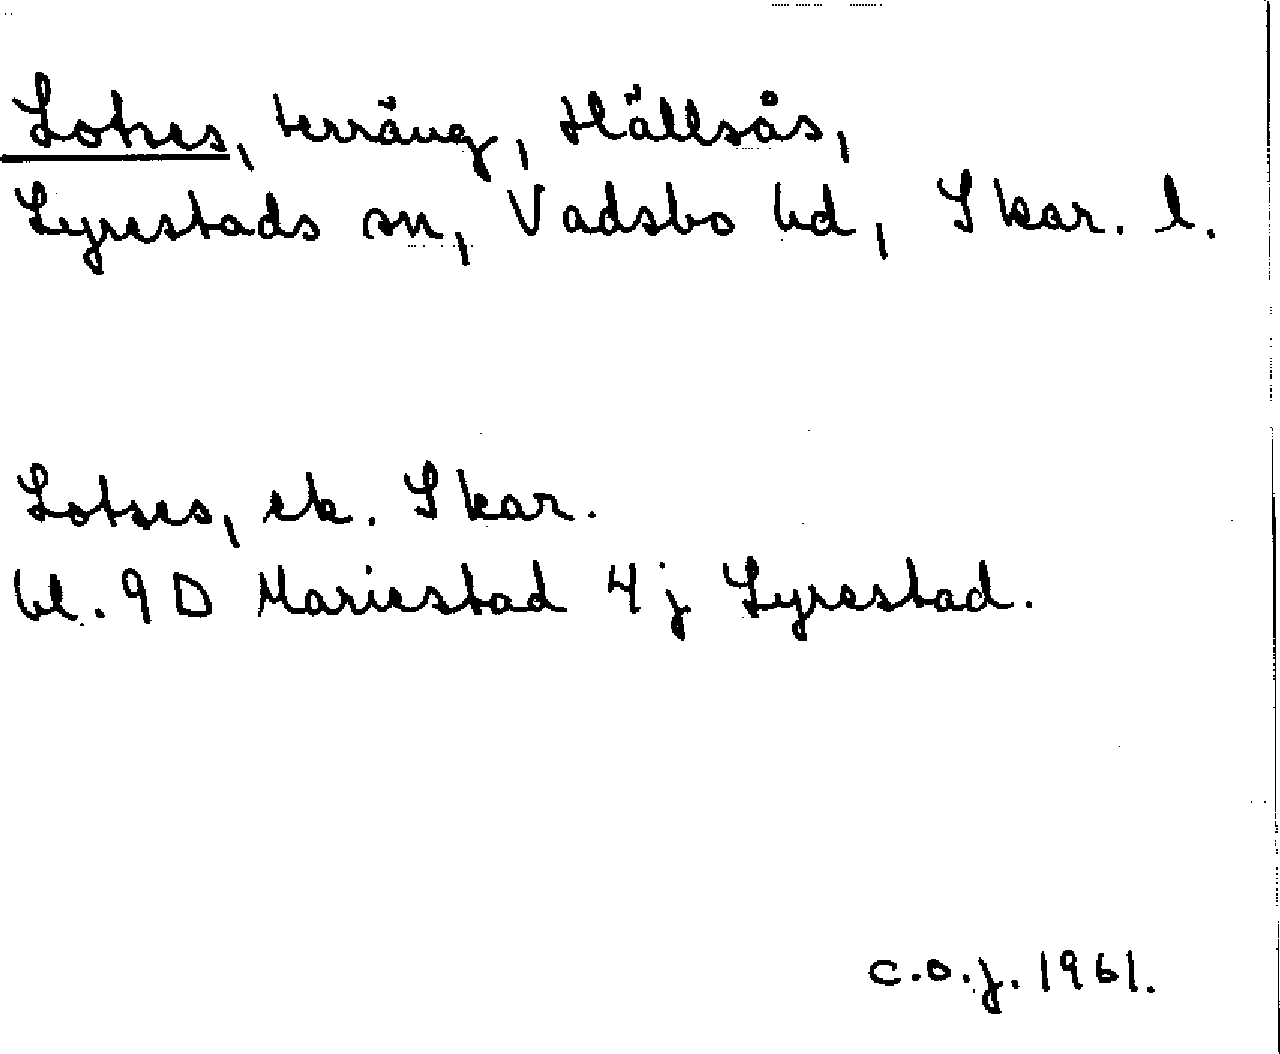 Lotses, terräng, Hällsås,
Lyrestads sn, Vadsbo hd, Skar. l.
Lotses, ek. Skar.
bl. 9 D Mariestad 4 j Lyrestad.
C.O.J. 1961.